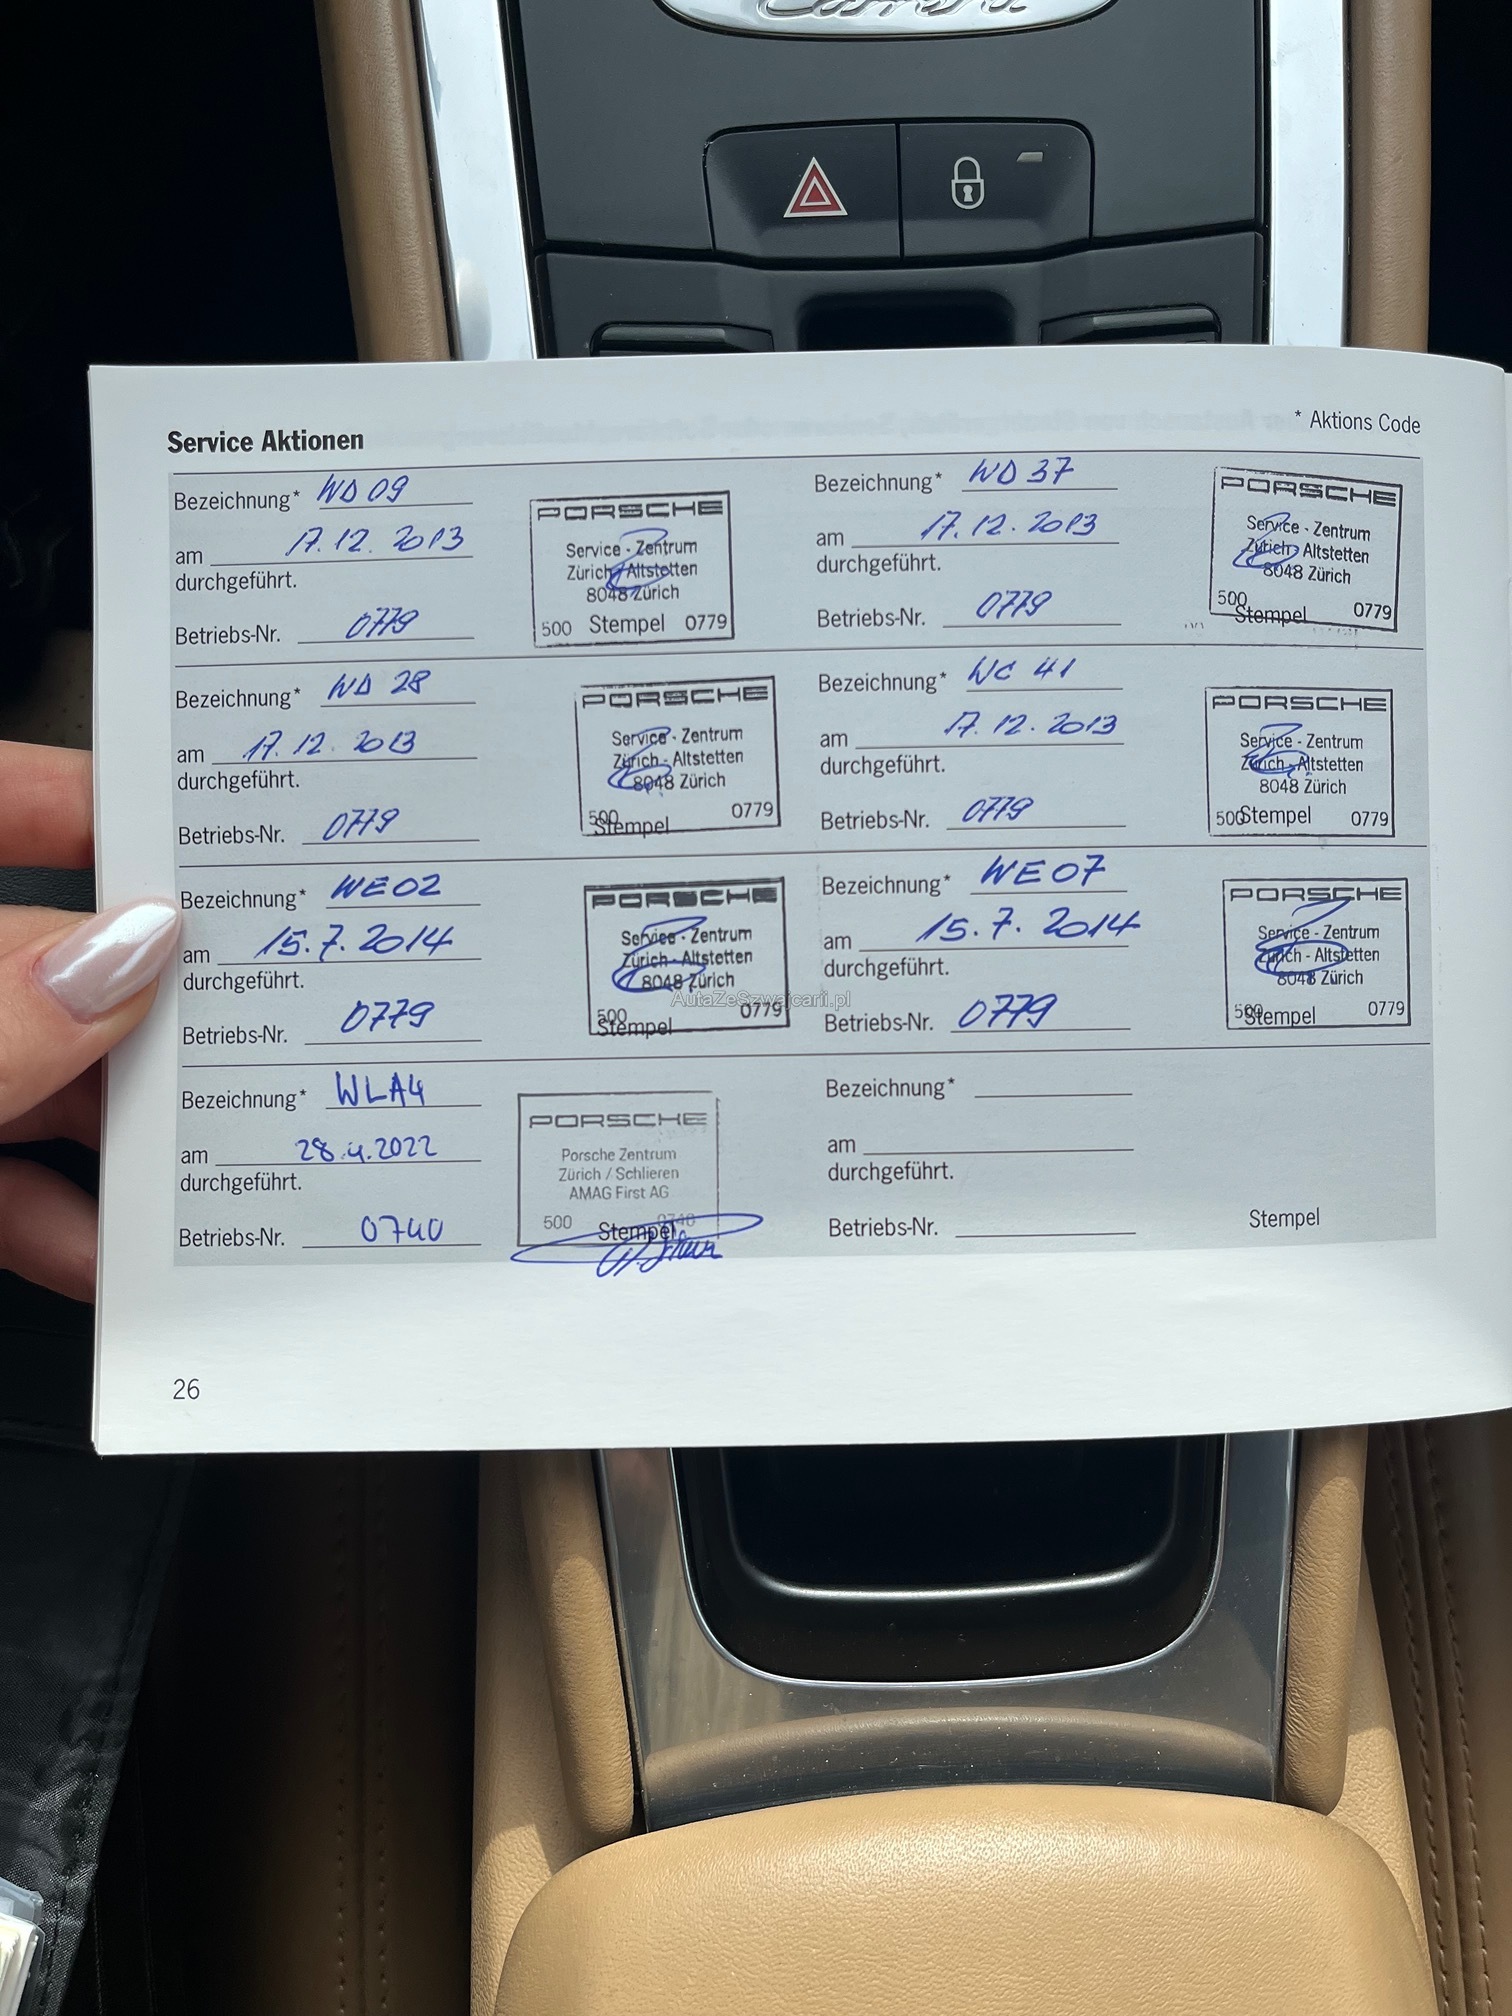 Carrera
* Aktions Code
Service Aktionen
Bezeichnung* WD 09
am 17.12.2013
durchgeführt.
Betriebs-Nr. 0779
PORSCHE
Service - Zentrum
Zürich - Altstetten
8048 Zürich
500 Stempel 0779
Bezeichnung* WD 37
am 17.12.2013
durchgeführt.
Betriebs-Nr. 0779
PORSCHE
Service - Zentrum
Zürich - Altstetten
8048 Zürich
500 Stempel 0779
Bezeichnung* WD 28
am 17.12.2013
durchgeführt.
Betriebs-Nr. 0779
PORSCHE
Service - Zentrum
Zürich - Altstetten
8048 Zürich
500 Stempel 0779
Bezeichnung* WC 41
am 17.12.2013
durchgeführt.
Betriebs-Nr. 0779
PORSCHE
Service - Zentrum
Zürich - Altstetten
8048 Zürich
500 Stempel 0779
Bezeichnung* WE02
am 15.7.2014
durchgeführt.
Betriebs-Nr. 0779
PORSCHE
Service - Zentrum
Zürich - Altstetten
8048 Zürich
500 Stempel 0779
AutaZeSzwajcarii.pl
Bezeichnung* WE07
am 15.7.2014
durchgeführt.
Betriebs-Nr. 0779
PORSCHE
Service - Zentrum
Zürich - Altstetten
8048 Zürich
500 Stempel 0779
Bezeichnung* WLA4
am 28.4.2022
durchgeführt.
Betriebs-Nr. 0740
PORSCHE
Porsche Zentrum
Zürich / Schlieren
AMAG First AG
500 Stempel 0740
Bezeichnung*
am
durchgeführt.
Betriebs-Nr.
Stempel
26